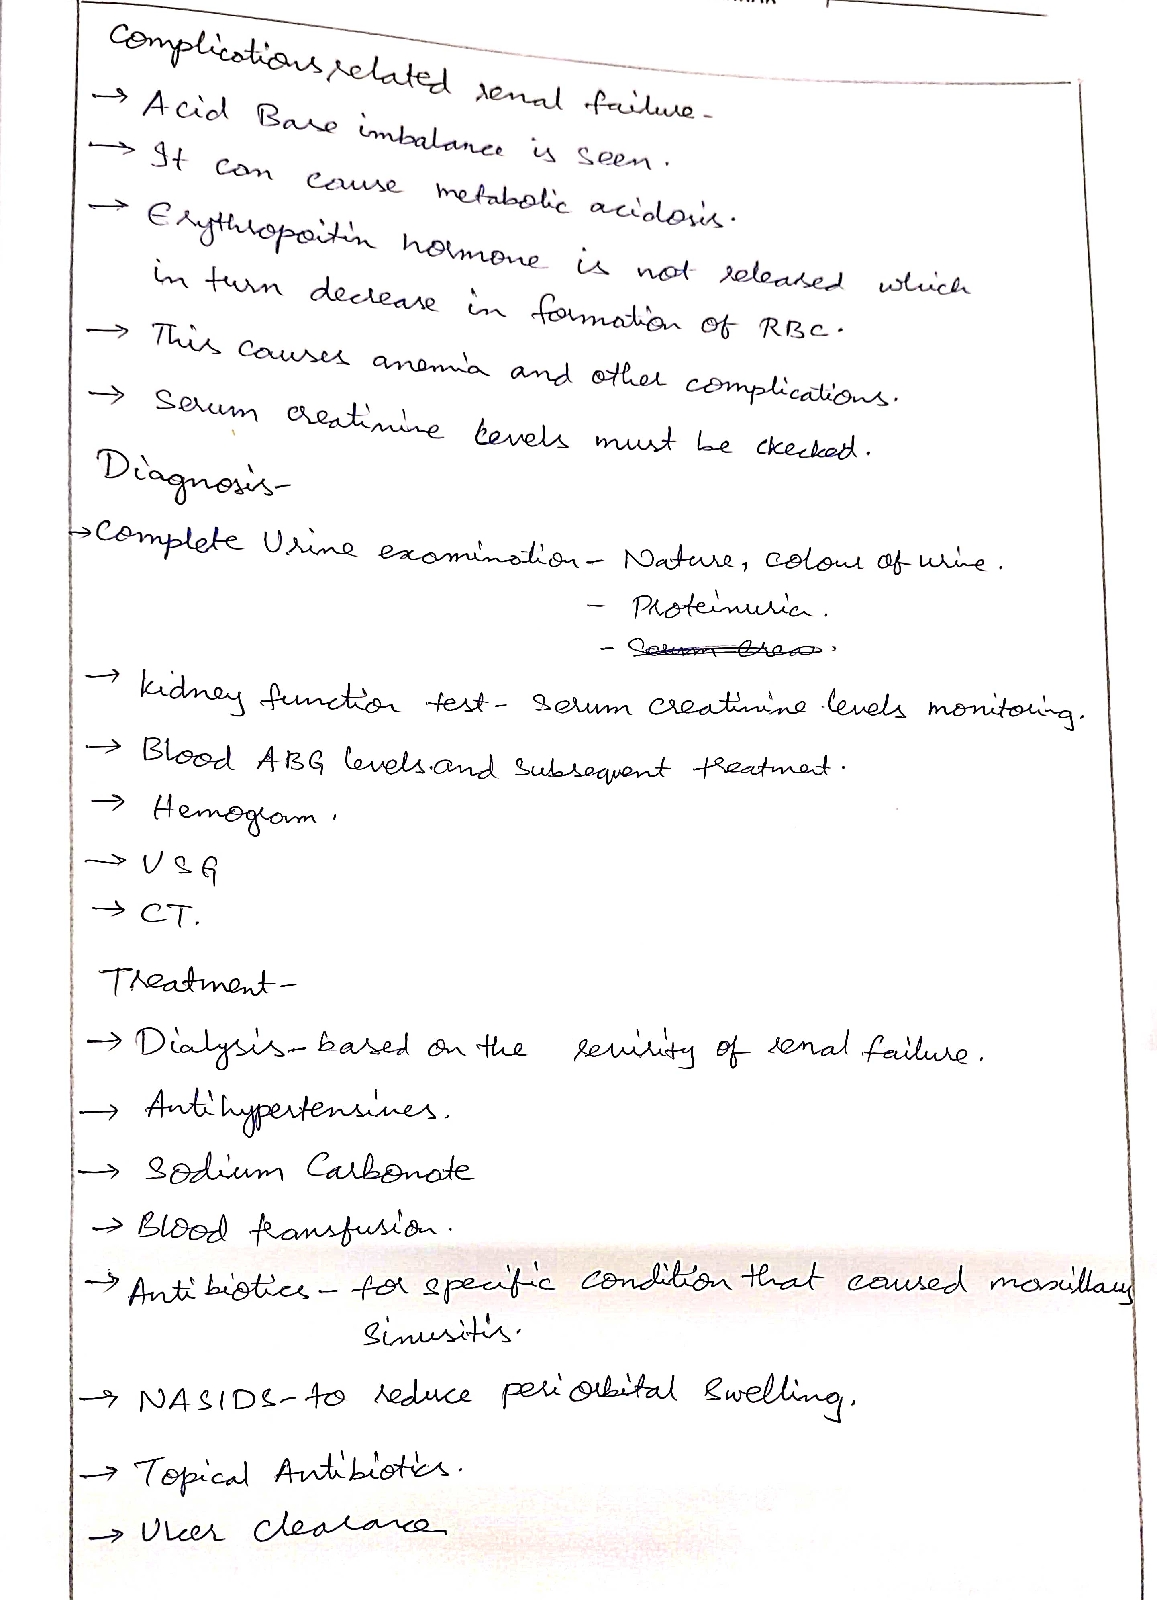 Complications related renal failure -
→ Acid Base imbalance is seen.
→ It can cause metabolic acidosis.
→ Erythropoitin hormone is not released which
in turn decrease in formation of RBC.
→ This causes anemia and other complications.
→ Serum creatinine levels must be checked.
Diagnosis -
→ Complete Urine examination - Nature, colour of urine.
- Proteinuria.
- Serum Crea.
→ kidney function test - serum creatinine levels monitoring.
→ Blood ABG levels and subsequent treatment.
→ Hemogram.
→ USG
→ CT.
Treatment -
→ Dialysis - based on the sevirity of renal failure.
→ Antihypertensives.
→ Sodium Carbonate
→ Blood transfusion.
→ Antibiotics - for specific condition that caused maxillary
sinusitis.
→ NASIDS - to reduce peri orbital swelling.
→ Topical Antibiotics.
→ Ulcer clearance